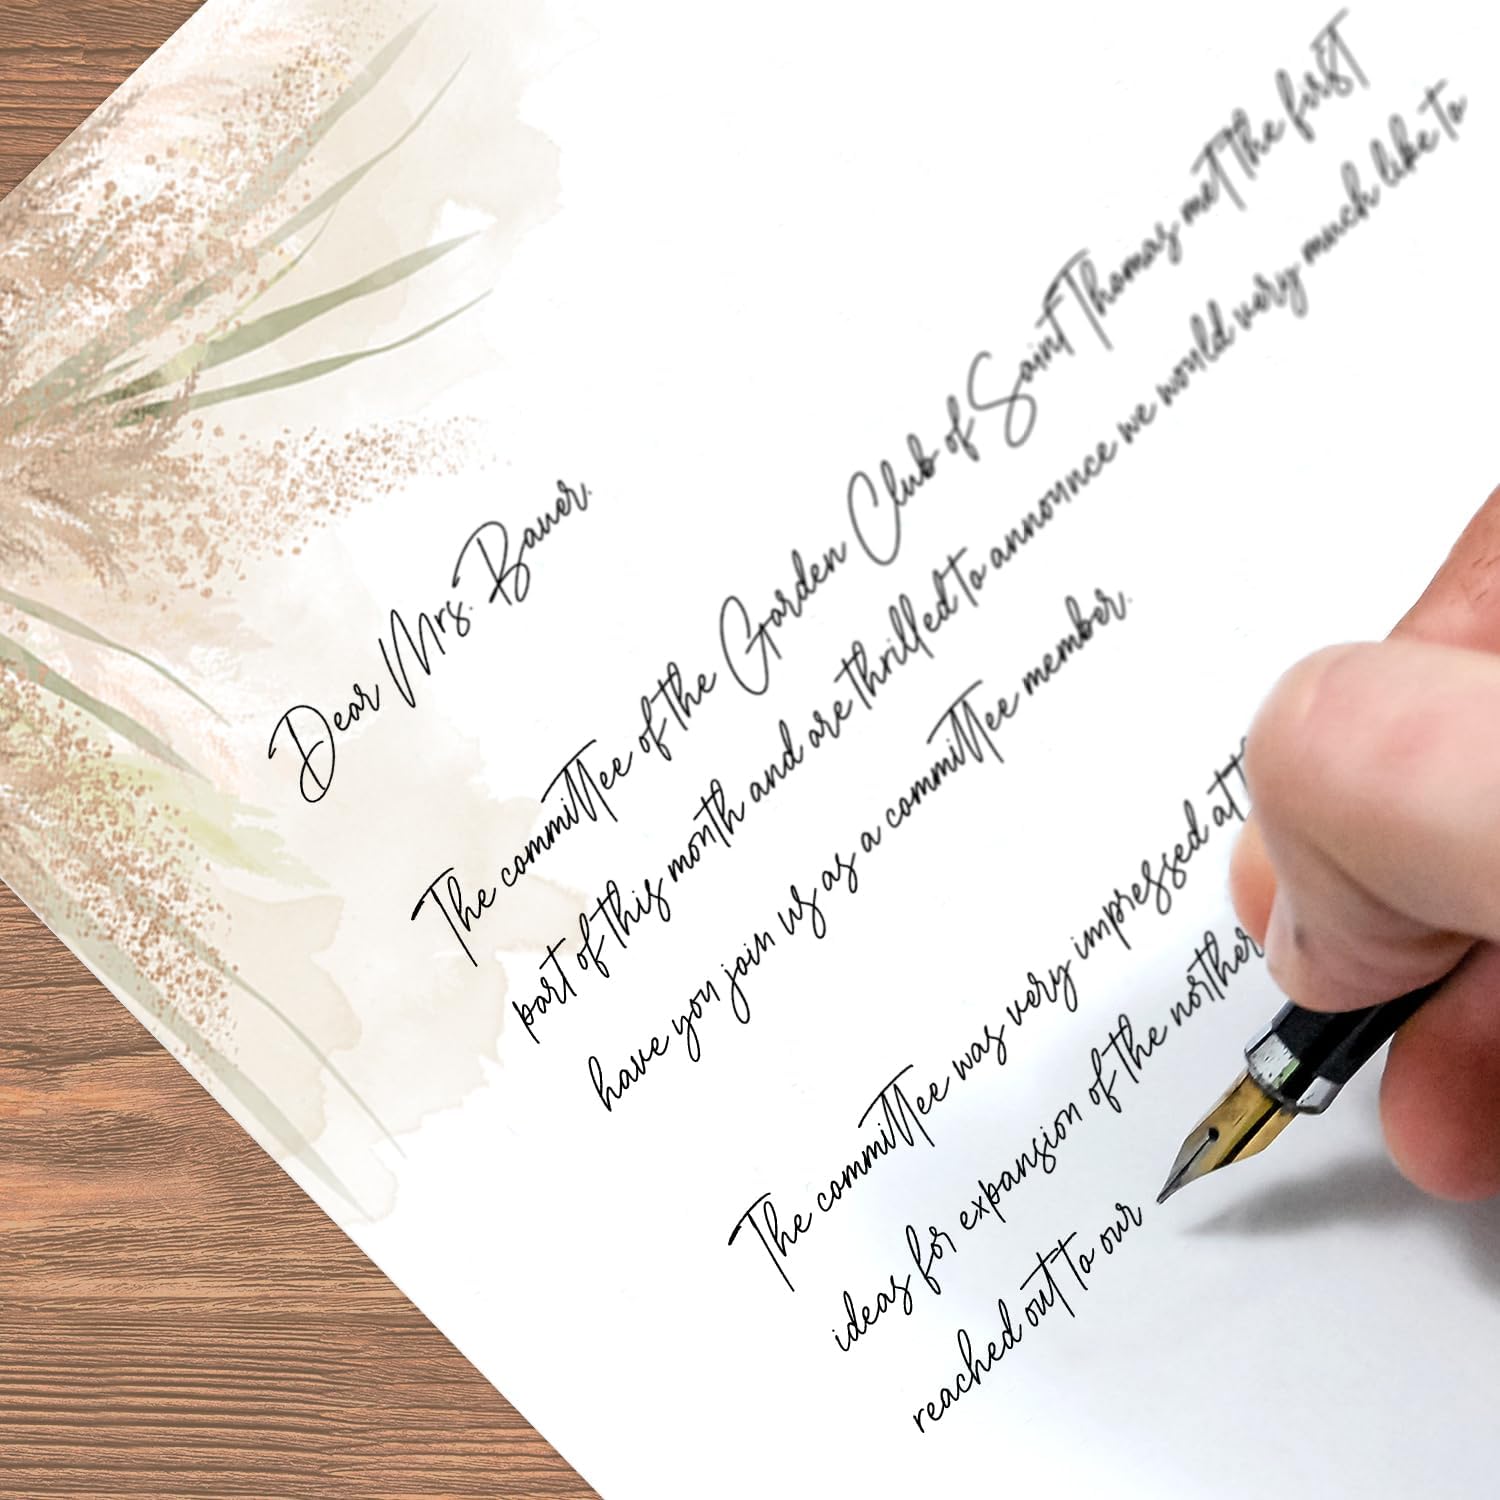 Dear Mrs. Bauer.
The committee of the Garden Club of Saint Thomas met the first
part of this month and are thrilled to announce we would very much like to
have you join us as a committee member.
The committee was very impressed at
ideas for expansion of the norther
reached out to our